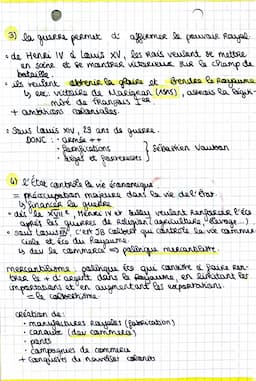 3) la guerre permet d'affirmer le pouvoir royal.
• de Henri IV à Louis XV, les rois veulent se mettre
en scène et se montrer victorieux sur le champ de
bataille.
• ils veulent obtenir la gloire et étendre le royaume
↳ ex: victoire de Marignan (1515), asseois la légiti-
mité de François 1er
+ ambitions coloniales.
• Sous Louis XIV, 29 ans de guerre.
DONC : - armée ++
- fortifications
- sièges et forteresses } Sébastien Vauban
4) l'État contrôle la vie économique
= préoccupation majeure dans la vie de l'État.
↳ financer la guerre
• dès le XVIIe, Henri IV et Sully veulent renforcer l'éco
après les guerres de religion (agriculture, élevage..)
• sous Louis XIV, c'est JB Colbert qui contrôle la vie commer-
ciale et éco du Royaume.
↳ dev le commerce ⇒ politique mercantiliste.
mercantilisme: politique éco qui consiste à faire ren-
trer le + d'argent dans le Royaume, en limitant les
importations et en augmentant les exportations.
= le colbertisme.
création de:
• manufactures royales (fabrication)
• canaux (dev commerce)
• ponts
• compagnies de commerce
+ conquêtes de nouvelles colonies